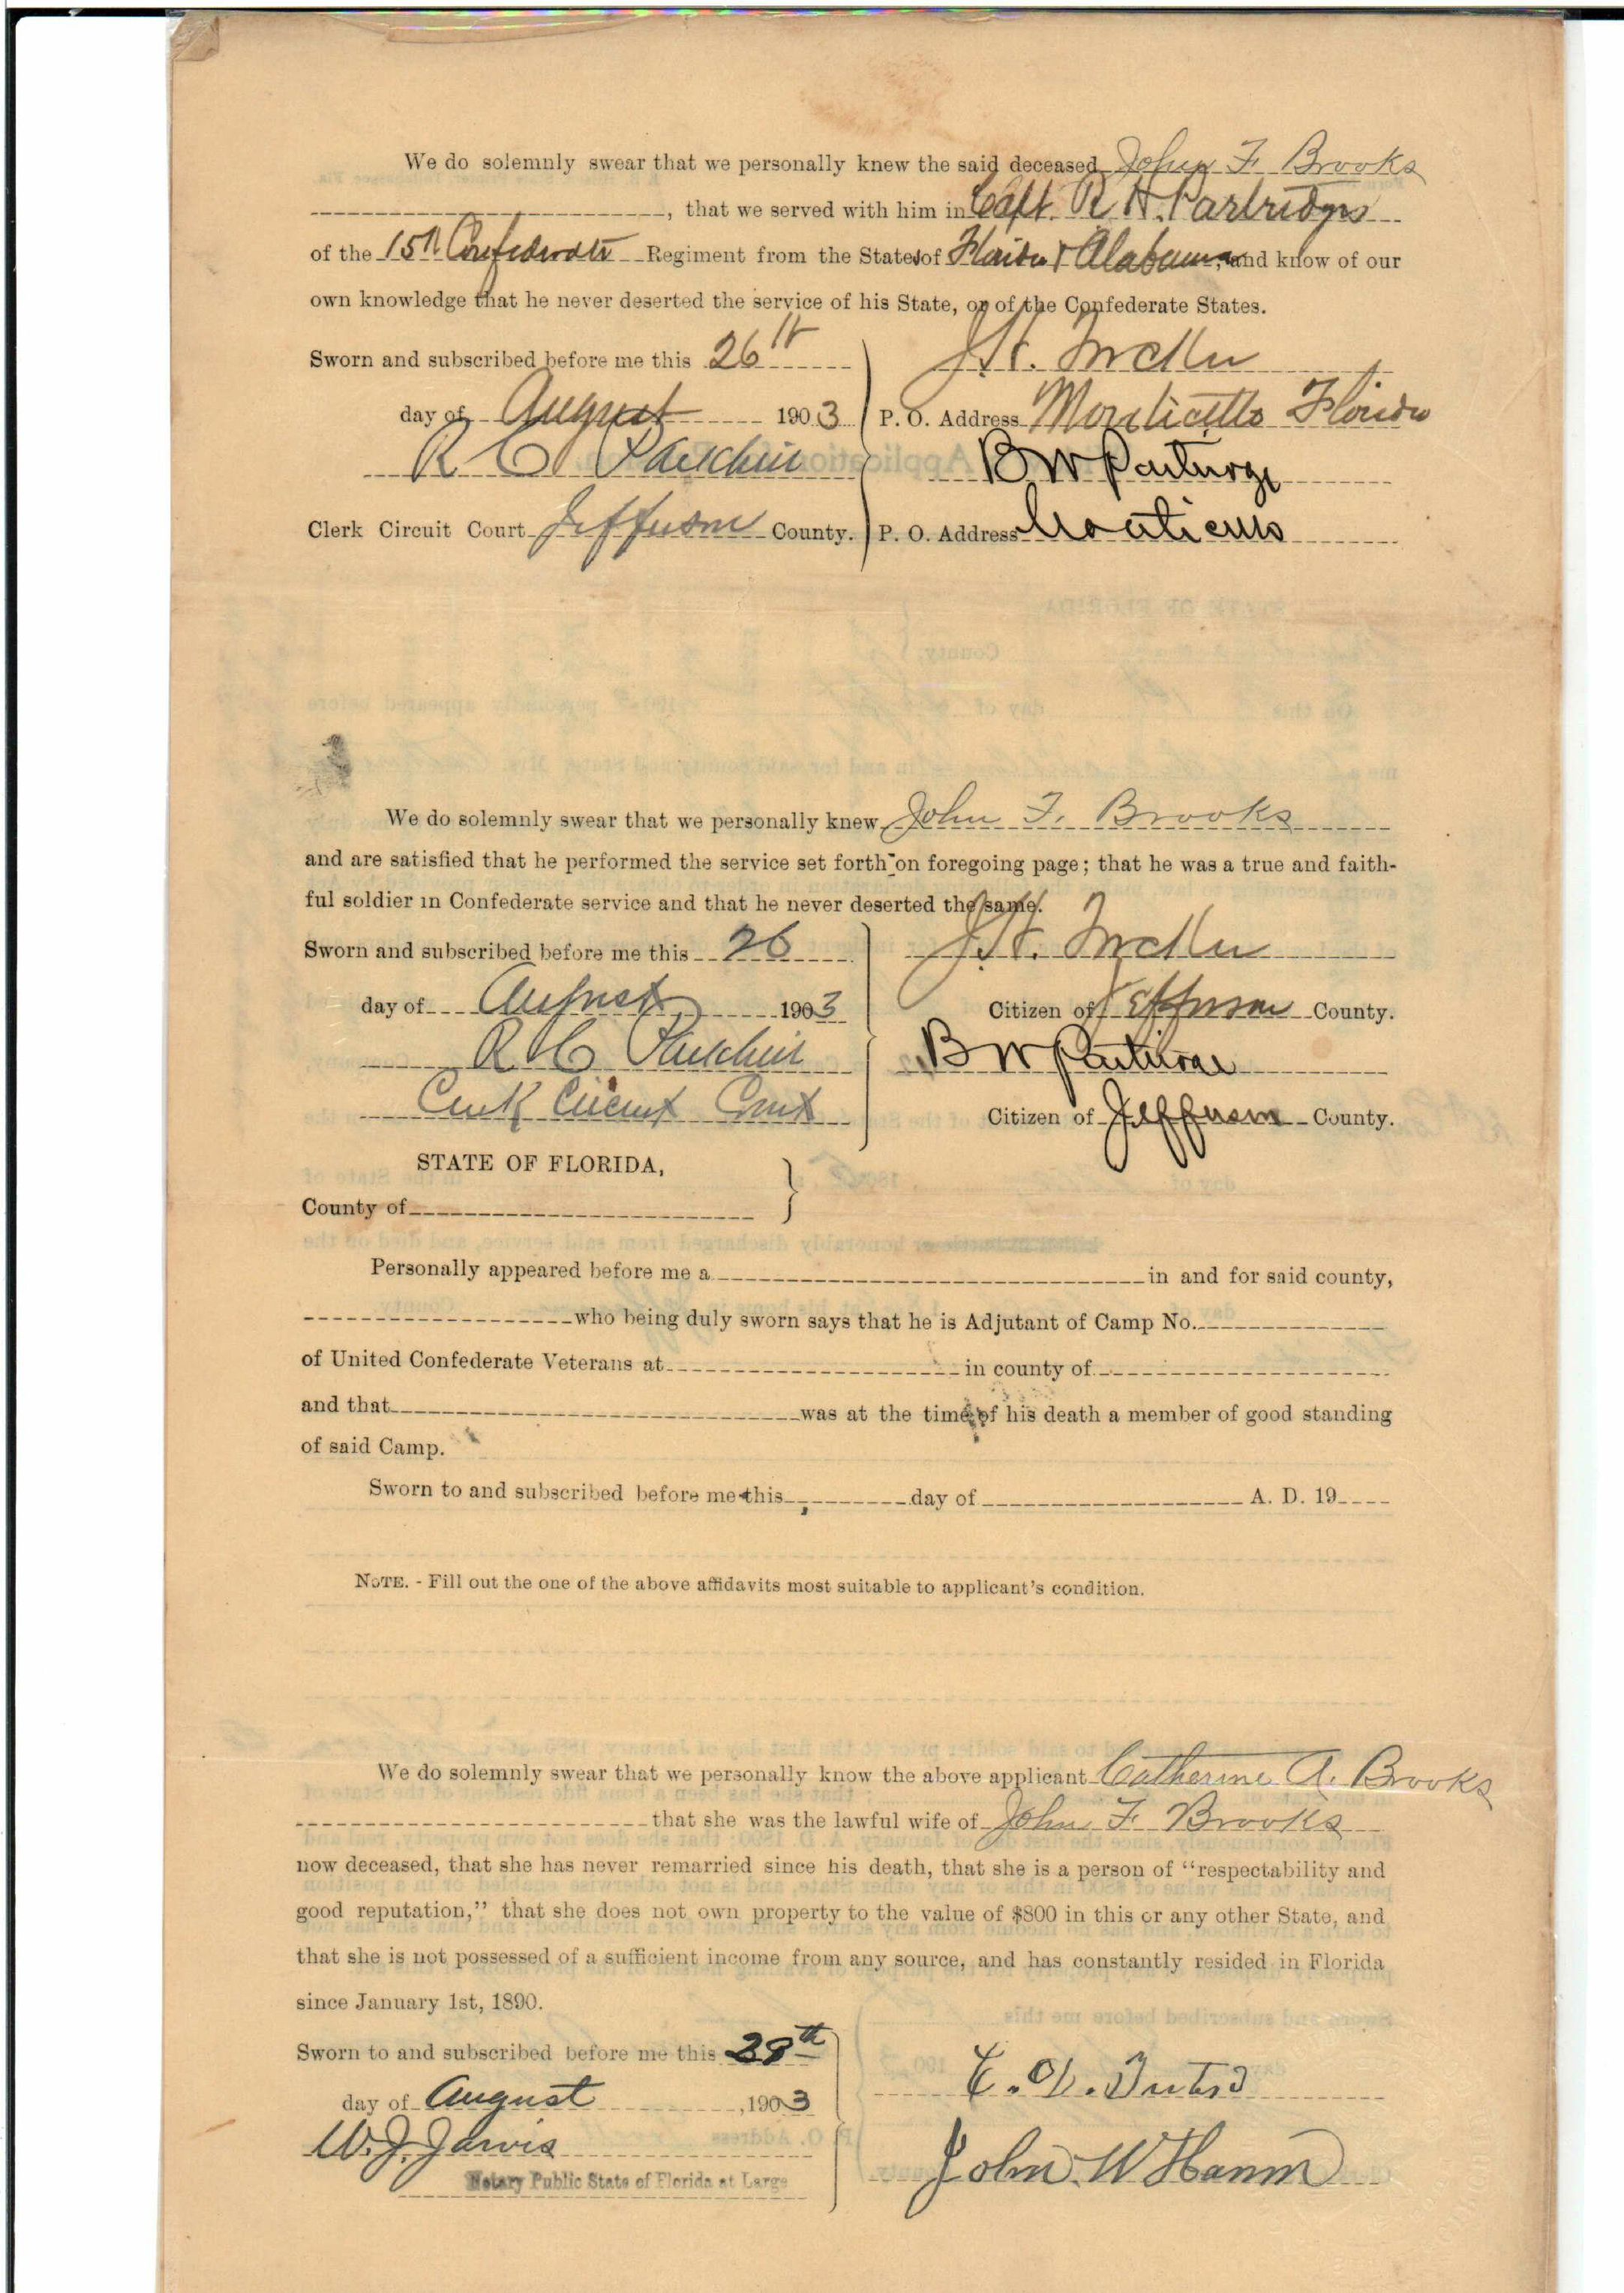 We do solemnly swear that we personally knew the said deceased John F Brooks
, that we served with him in Capt. R H. Partridges
of the 15th Confederate Regiment from the States of Florida & Alabama, and know of our
own knowledge that he never deserted the service of his State, or of the Confederate States.
Sworn and subscribed before me this 26th
day of August 1903
P. O. Address Monticello Florida
B W Partridge
Clerk Circuit Court Jefferson County.
P. O. Address Monticello
We do solemnly swear that we personally knew John F. Brooks
and are satisfied that he performed the service set forth on foregoing page; that he was a true and faith-
ful soldier in Confederate service and that he never deserted the same.
Sworn and subscribed before me this 26
day of August 1903
Citizen of Jefferson County.
B W Partridge
Clerk Circuit Court
Citizen of Jefferson County.
STATE OF FLORIDA,
County of
Personally appeared before me a in and for said county,
who being duly sworn says that he is Adjutant of Camp No.
of United Confederate Veterans at in county of
and that was at the time of his death a member of good standing
of said Camp.
Sworn to and subscribed before me this day of A. D. 19
NOTE. - Fill out the one of the above affidavits most suitable to applicant's condition.
We do solemnly swear that we personally know the above applicant Catherine A. Brooks
that she was the lawful wife of John F Brooks
now deceased, that she has never remarried since his death, that she is a person of “respectability and
good reputation,” that she does not own property to the value of $800 in this or any other State, and
that she is not possessed of a sufficient income from any source, and has constantly resided in Florida
since January 1st, 1890.
Sworn to and subscribed before me this 28th
day of August, 1903
W. J. Jarvis
Notary Public State of Florida at Large
John W Hamm